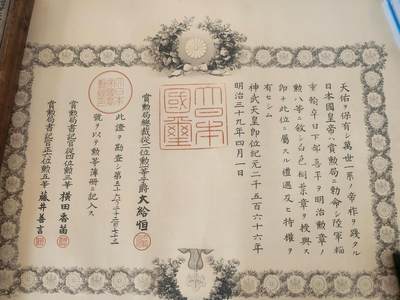 天佑ヲ保有シ萬世一系ノ帝祚ヲ踐タル
日本國皇帝ハ賞勳局ニ勅命シ陸軍輜
重輸卒日下部喜平ヲ明治勳章ノ
勳八等ニ敍シ白色桐葉章ヲ授與ス
即チ此位ニ屬スル禮遇及ヒ特權ヲ
有セシム
神武天皇即位紀元二千五百六十六年
明治三十九年四月一日
大日本
國璽
賞勳局總裁從二位勳一等子爵大給恒
此證ヲ勘査シ第
號ヲ以テ勳等簿冊ニ記入ス
賞勳局書記官從四位勳三等横田香苗
賞勳局書記官 勳五等藤井善言